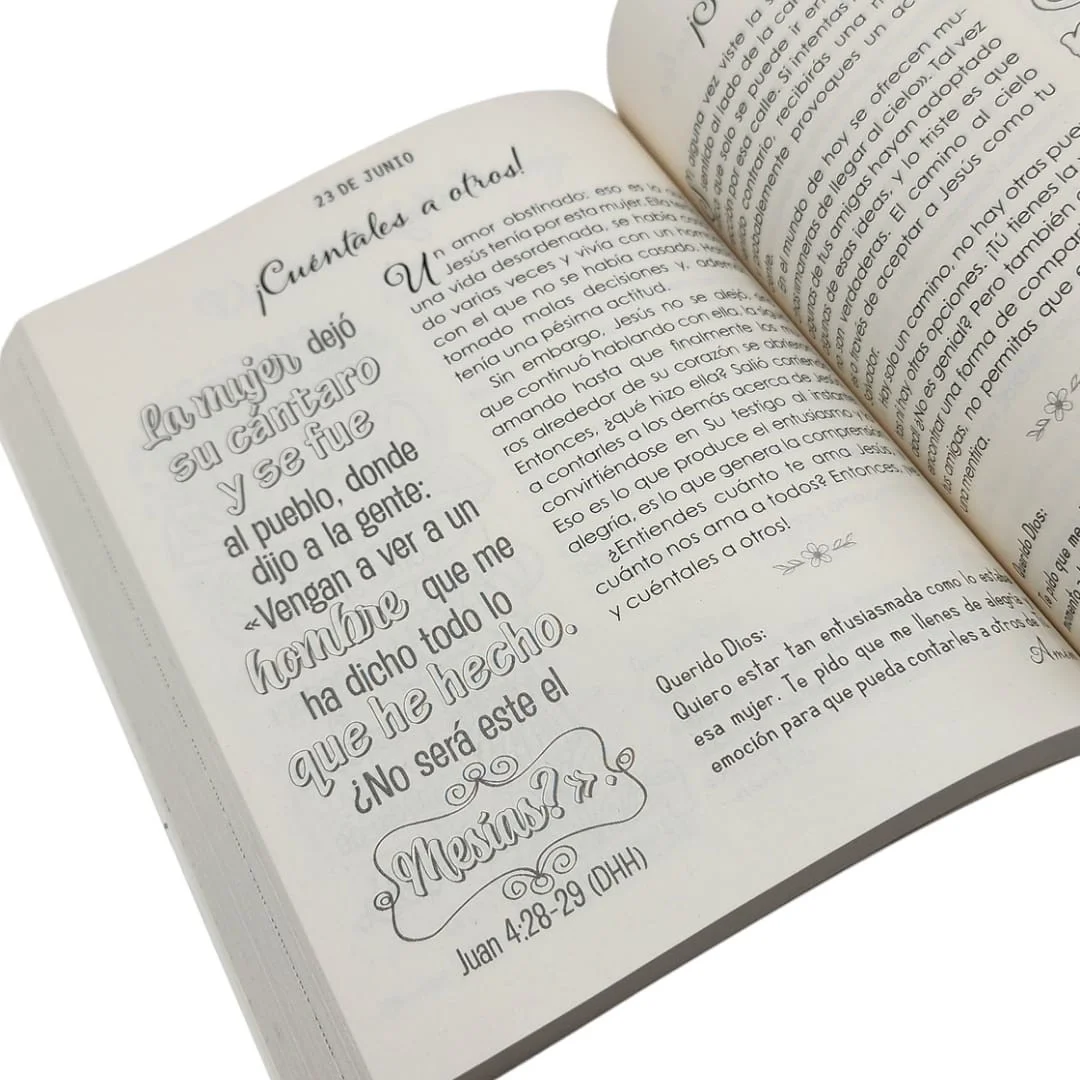 23 DE JUNIO
¡Cuéntales a otros!
La mujer dejó
su cántaro
y se fue
al pueblo, donde
dijo a la gente:
«Vengan a ver a un
hombre que me
ha dicho todo lo
que he hecho.
¿No será este el
Mesías?».
Juan 4:28-29 (DHH)
Un amor obstinado: eso es lo
Jesús tenía por esta mujer. Ella
una vida desordenada, se había
do varias veces y vivía con un
con el que no se había casado.
tomado malas decisiones y,
tenía una pésima actitud.
Sin embargo, Jesús no se alejó,
que continuó hablando con ella, la
amando hasta que finalmente los
ros alrededor de su corazón se
Entonces, ¿qué hizo ella? Salió
a contarles a los demás acerca de
convirtiéndose en Su testigo al
Eso es lo que produce el entusiasmo y
alegría, es lo que genera la
¿Entiendes cuánto te ama Jesús
cuánto nos ama a todos? Entonces,
y cuéntales a otros!
Querido Dios:
Quiero estar tan entusiasmada como lo
esa mujer. Te pido que me llenes de alegría
emoción para que pueda contarles a otros de
alguna vez viste la
sentido al lado de la
que solo se puede ir en
por esa calle. Si intentas
contrario, recibirás una
probablemente provoques un
En el mundo de hoy se ofrecen mu-
maneras de llegar al cielo». Tal vez
algunas de tus amigas hayan adoptado
algunas de esas ideas, y lo triste es que
no son verdaderas. El camino al cielo
es a través de aceptar a Jesús como tu
Salvador.
Hay solo un camino, no hay otras
ni hay otras opciones. ¡Tú tienes la
dad! ¿No es genial? Pero también
encontrar una forma de
tus amigas, no permitas que
una mentira.
Querido Dios:
Te pido que me